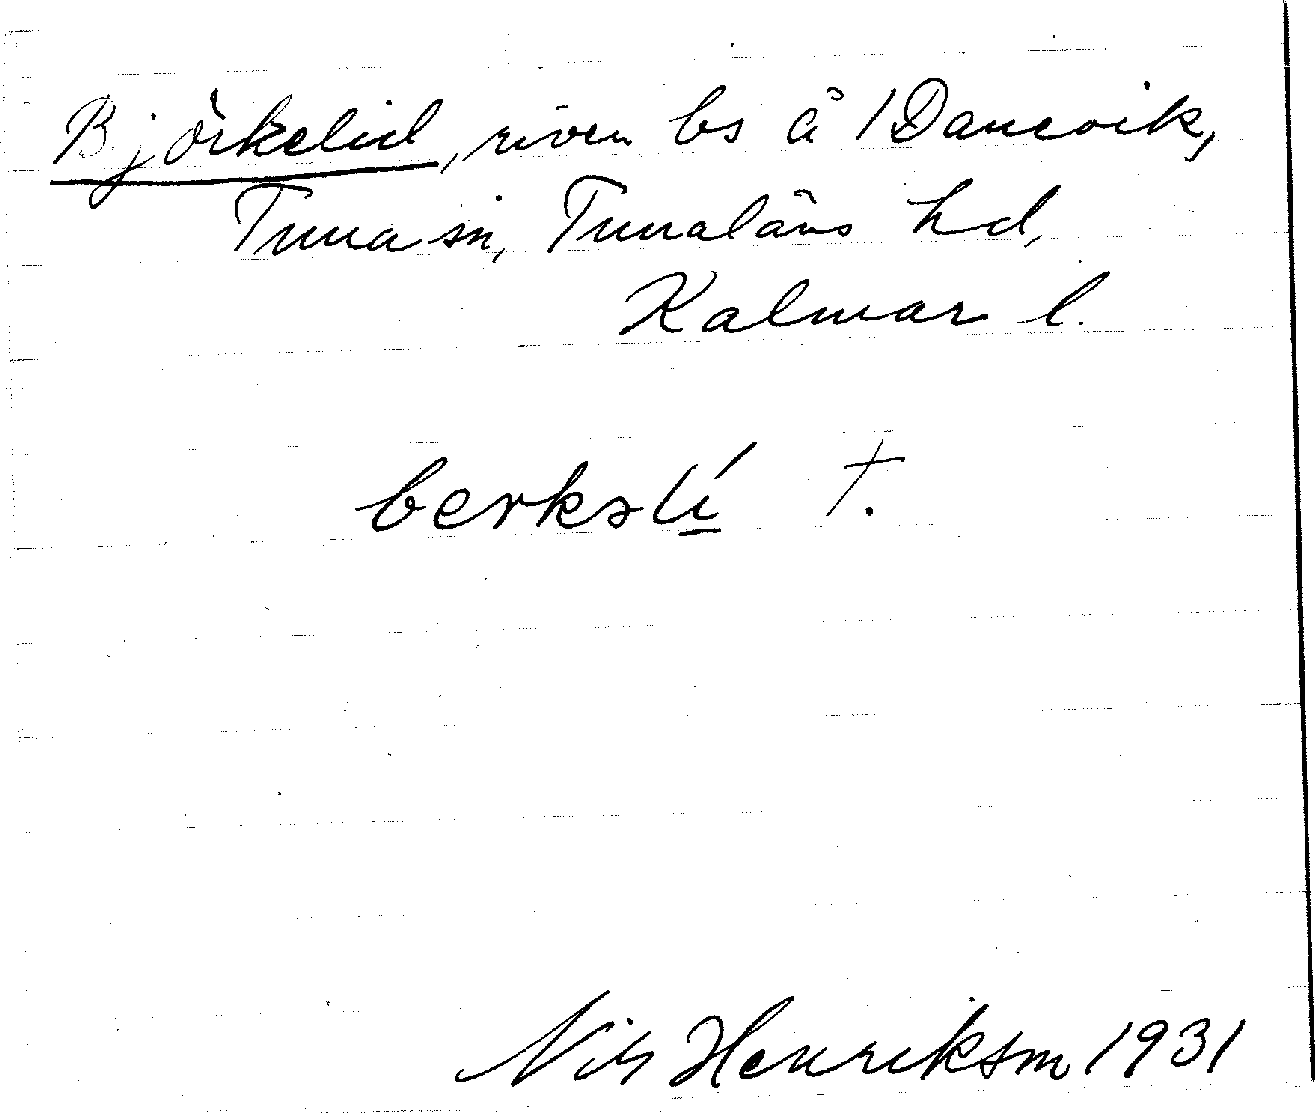 Björkelid, riven bs å 1 Danevik,
Tuna sn, Tunaläns hd,
Kalmar l.
berkəlí̱ †.
Nils Henriksson 1931